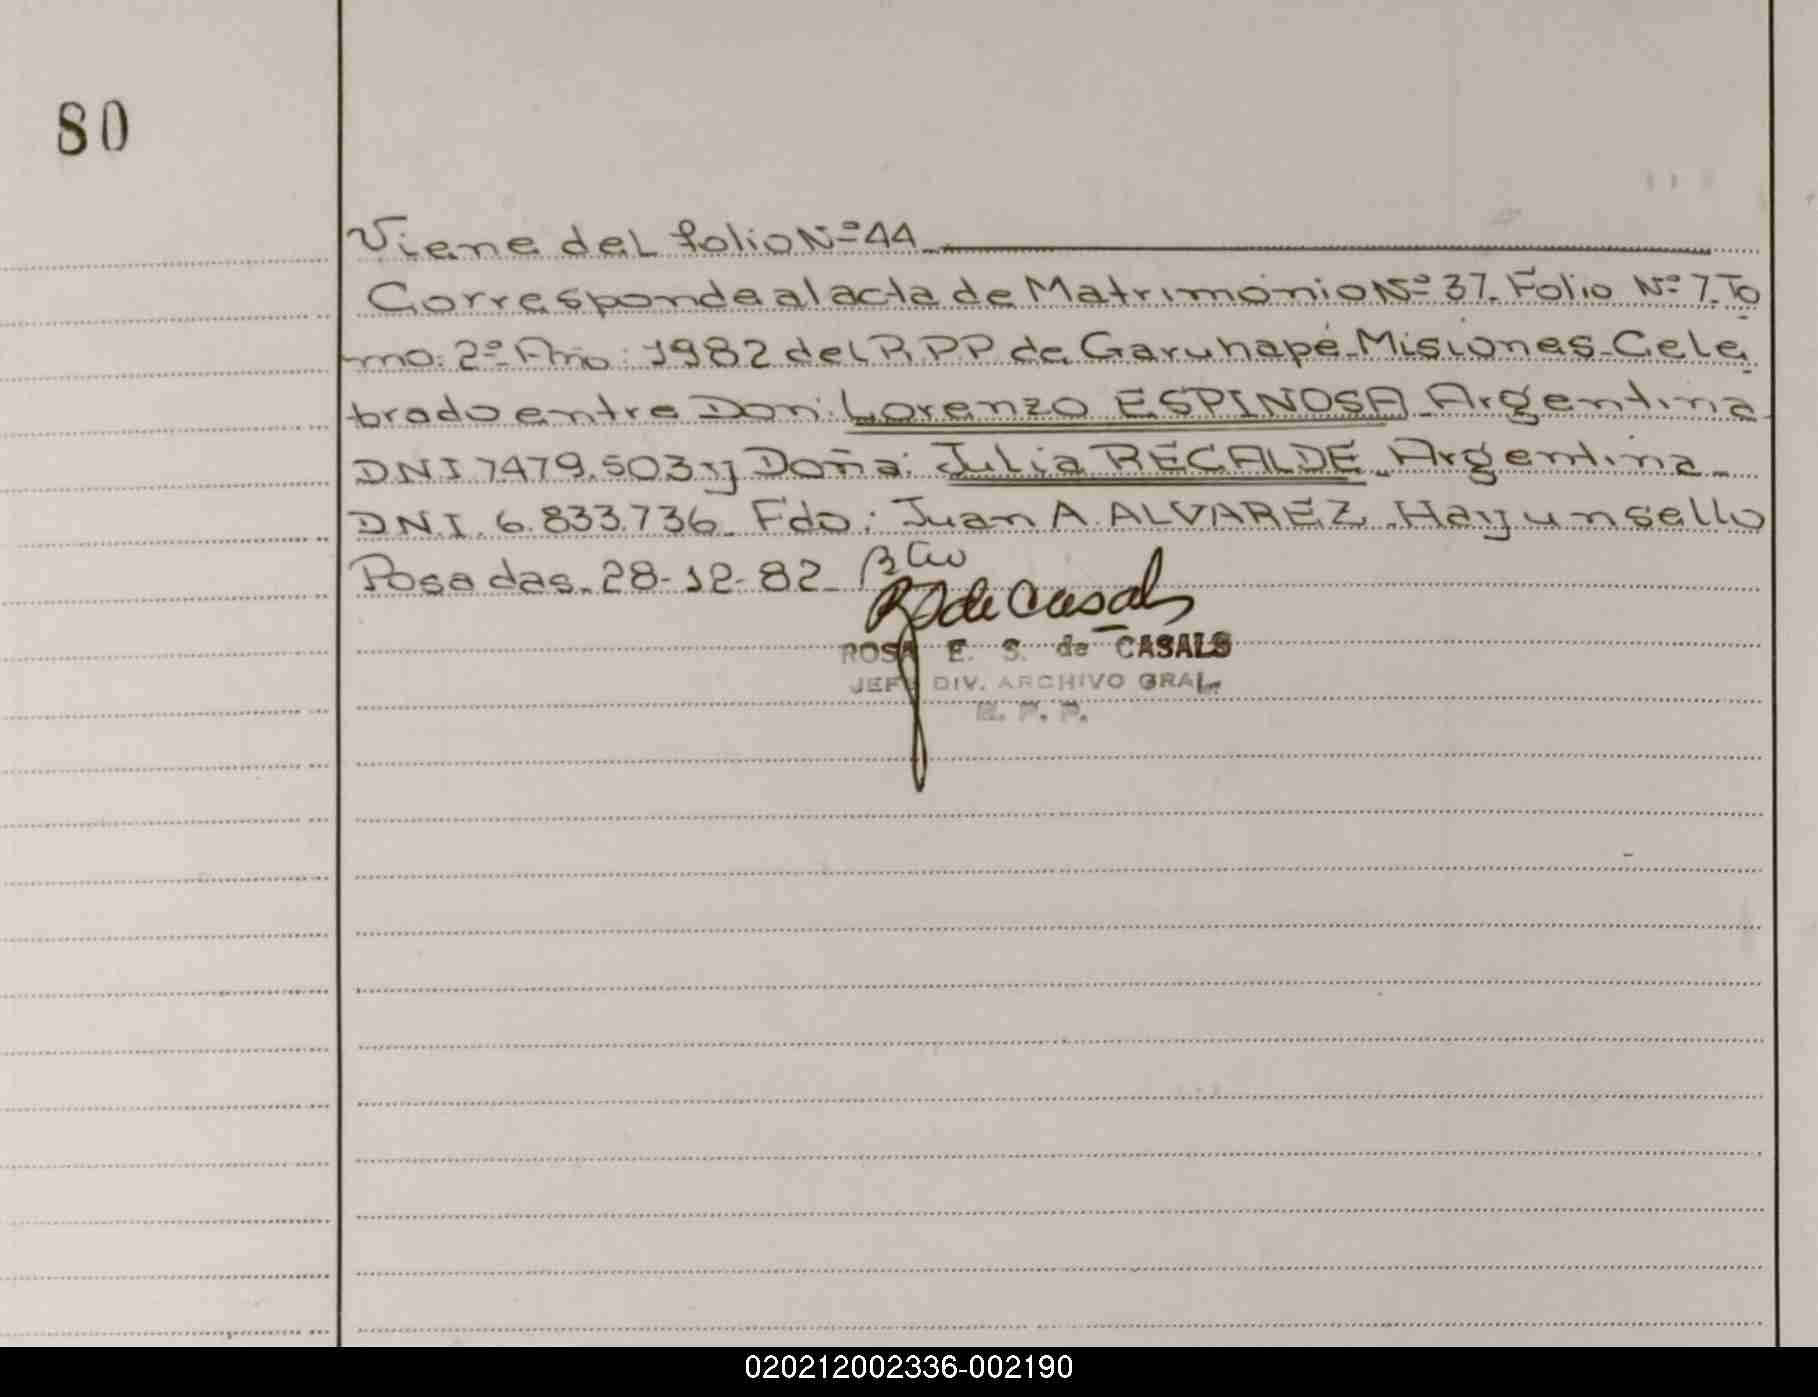 80
Viene del folio Nº 44.
Corresponde al acta de Matrimonio Nº 37. Folio Nº 7. To
mo: 2º Año: 1982 del R.P.P. de Garuhapé-Misiones-Cele
brado entre Don: Lorenzo ESPINOSA-Argentina-
DNI 7.479.503 y Doña: Julia RECALDE-Argentina-
D.N.I. 6.833.736. Fdo: Juan A. ALVAREZ. Hay un sello
Posadas-28-12-82-
de Casals
ROSA E. S. de CASALS
JEFE DIV. ARCHIVO GRAL.
R. P. P.
020212002336-002190